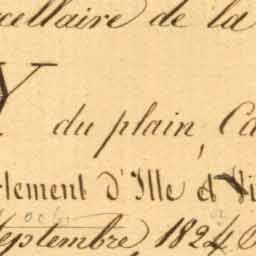 cellaire de la
Y du plain, Ca
rtement d'Ille et Vi
octo
Septembre 1824